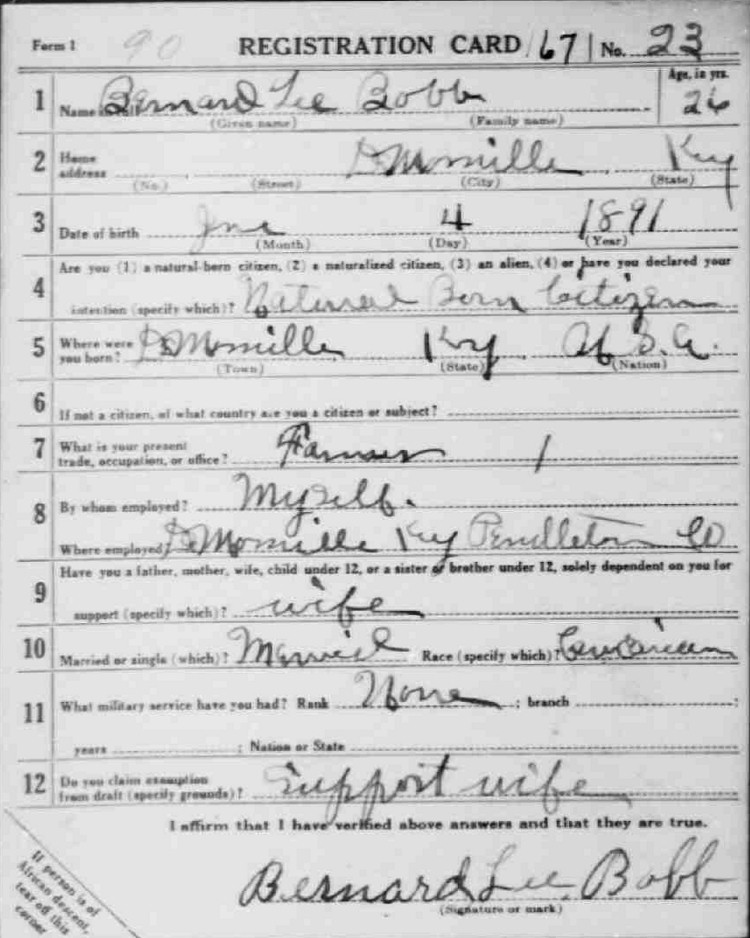 Form 1 90 REGISTRATION CARD 167 No. 23
Age, in yrs.
1 Name in full Bernard Lee Bobb 26
(Given name) (Family name)
2 Home address DeMossville Ky
(No.) (Street) (City) (State)
3 Date of birth June 4 1891
(Month) (Day) (Year)
Are you (1) a natural-born citizen, (2) a naturalized citizen, (3) an alien, (4) or have you declared your
4 intention (specify which)? Natural Born Citizen
5 Where were you born? DeMossville Ky U. S. A.
(Town) (State) (Nation)
6 If not a citizen, of what country are you a citizen or subject?
7 What is your present trade, occupation, or office? Farmer
8 By whom employed? Myself.
Where employed? DeMossville Ky Pendleton Co
Have you a father, mother, wife, child under 12, or a sister or brother under 12, solely dependent on you for
9 support (specify which)? wife
10 Married or single (which)? Married Race (specify which)? Caucasian
11 What military service have you had? Rank None ; branch ;
years ; Nation or State
12 Do you claim exemption from draft (specify grounds)? Support wife
I affirm that I have verified above answers and that they are true.
Bernard Lee Bobb
(Signature or mark)
If person is of
African descent,
tear off this
corner